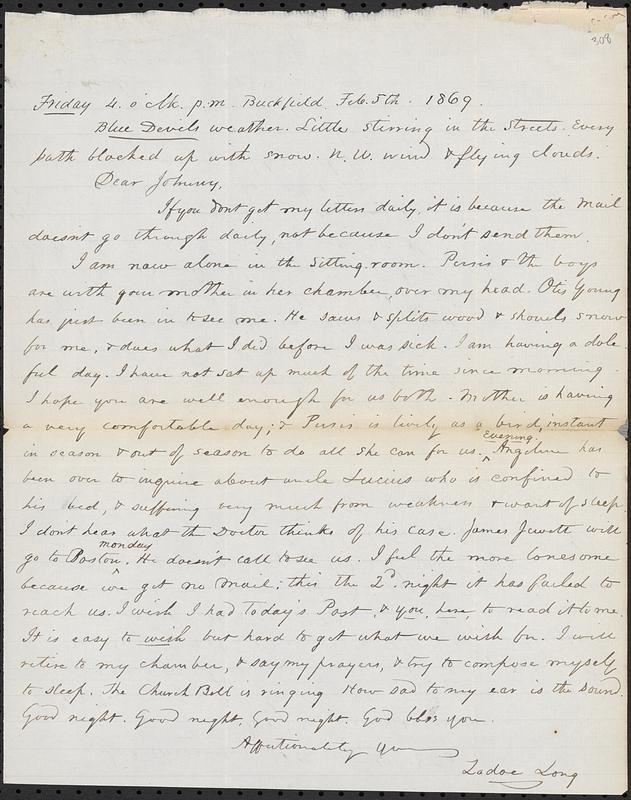 308
Friday 4. o'clk. p.m. Buckfield Feb. 5th. 1869.
Blue Devils weather. Little stirring in the streets. Every
path blocked up with snow. N. W. wind & flying clouds.
Dear Johnny,
If you dont get my letters daily, it is because the mail
doesnt go through daily, not because I don't send them.
I am now alone in the sitting-room. Persis & the boys
are with your mother in her chamber, over my head. Otis Young
has just been in to see me. He saws & splits wood & shovels snow
for me, & does what I did before I was sick. I am having a dole
ful day. I have not sat up much of the time since morning.
I hope you are well enough for us both. Mother is having
a very comfortable day; & Persis is lively as a bird, instant
in season & out of season to do all she can for us. Evening. Angeline has
been over to inquire about uncle Lucius who is confined to
his bed, & suffering very much from weakness & want of sleep.
I don't hear what the Doctor thinks of his case. James Jewett will
go to Boston monday. He doesn't call to see us. I feel the more lonesome
because we get no mail; this the 2d. night it has failed to
reach us. I wish I had today's Post, & you, here, to read it to me.
It is easy to wish but hard to get what we wish for. I will
retire to my chamber, & say my prayers, & try to compose myself
to sleep. The Church Bell is ringing How sad to my ear is the sound.
Good night. Good night, Good night. God bless you.
Affectionately yours
Zadoc Long